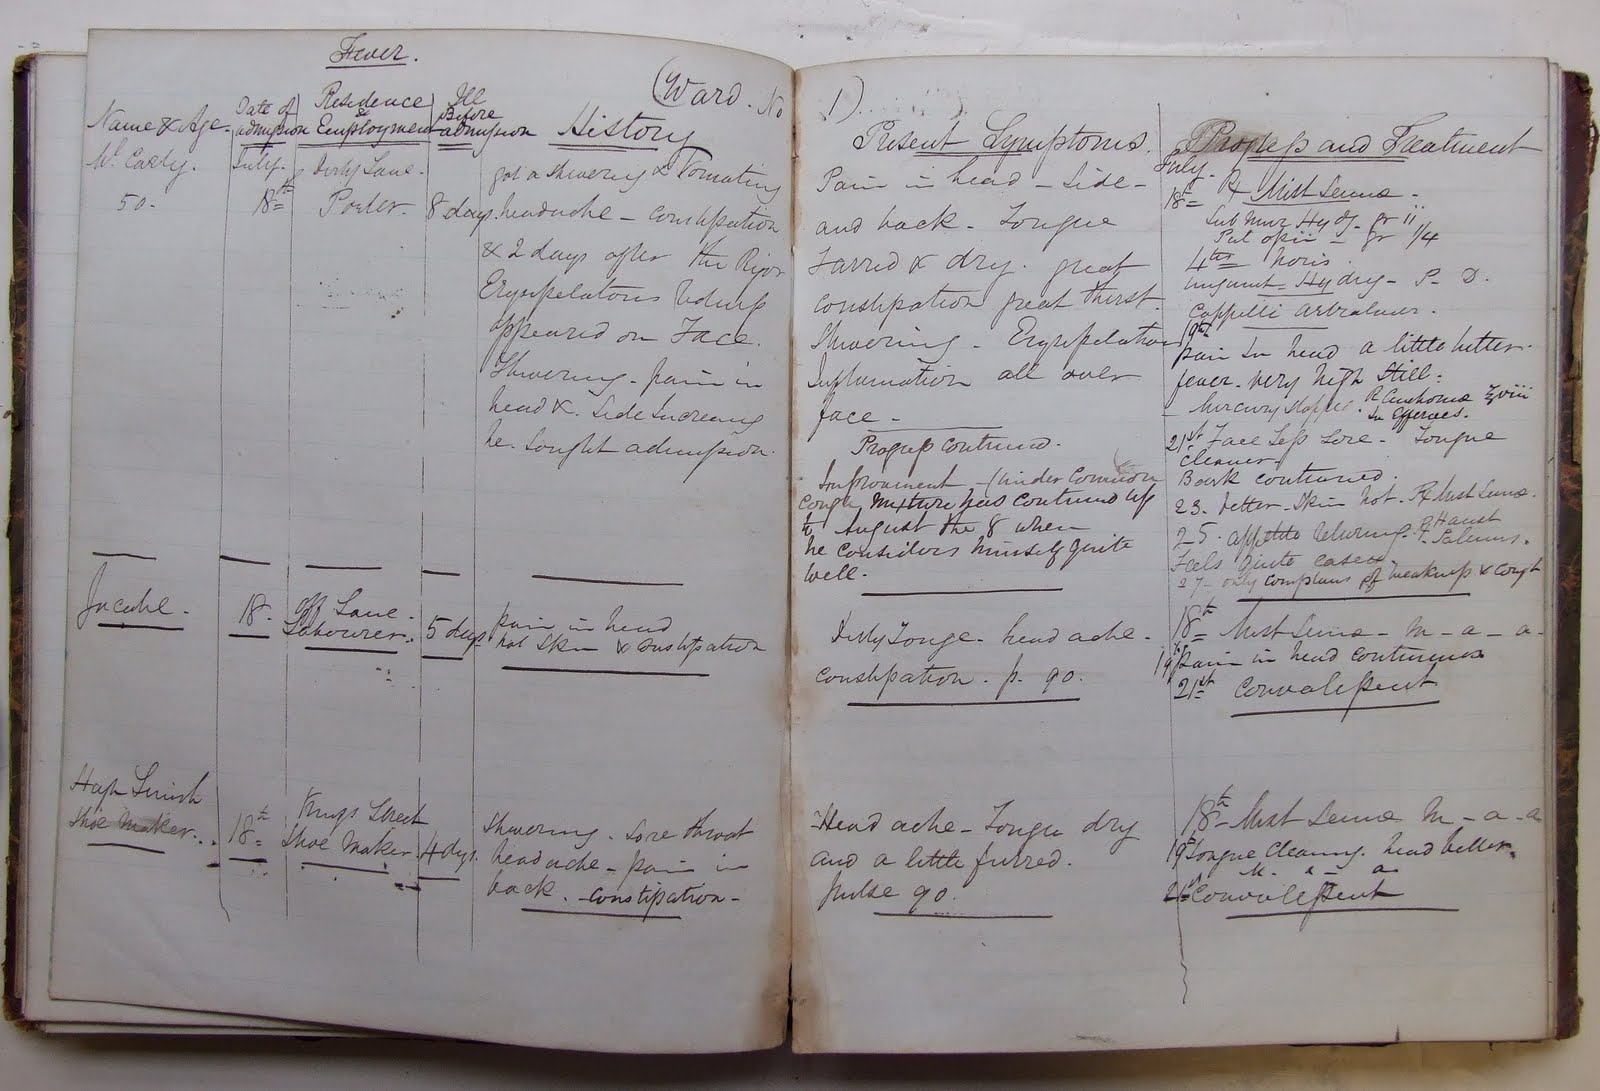 Fever.
(Ward. No 1)
Name & Age.
Date of admission
Residence & Employment
Ill Before admission
History
Present Symptoms.
Progress and Treatment
Wm Carty.
50.
July.
18th
Dirty Lane.
Porter.
8 days.
got a shivering & Vomiting
headache - constipation
& 2 days after the Rigor
Erysipelatous
appeared on Face.
Shivering - pain in
head & Side Increasing
he sought admission.
Pain in head - Side -
and back. Tongue
Furred & dry. great
constipation great thirst.
Shivering - Erysipelatous
Inflamation all over
face -
Progress continued.
Improvement - (under Common
Cough Mixture has continued up
to August the 8 when
he considers himself quite
well.
July.
18th ℞ Mist Sennæ -
Sub Mur Hydg. gr ii
Pul opii - gr 1/4
4tis horis
Hydrg - P. D.
Cappilli
19th
pain in head a little better.
fever very high Still:
Mercury stopped. ℞
In Efferves.
21st Face less Sore - Tongue
cleaner
Bark continued.
23. better. Skin hot. ℞ Mist Sennæ.
25. appetite returning. ℞ Haust Salinus.
Feels quite easier
27 - only complains of weakness & cough
18.
off Lane.
Labourer.
5 days
pain in head
hot Skin & constipation
Dirty Tonge - head ache -
constipation. p. 90.
18th Mist Sennæ - m - a - a -
19th pain in head continues
21st Convalescent
Hugh
Shoe Maker.
18th
Kings Street
Shoe Maker
4 dys.
Shivering. Sore throat
headache - pain in
back. - constipation -
Head ache - Tongue dry
and a little furred.
pulse 90.
18th Mist Sennæ M - a - a
19th Tongue Cleaning. head better.
21st Convalescent